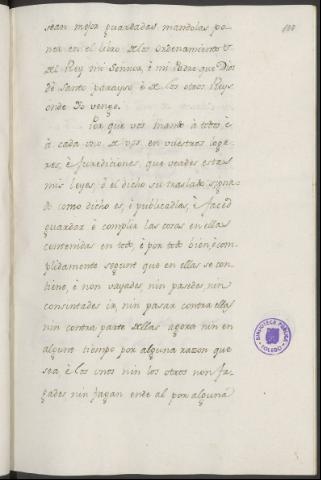 sean mejor guardadas mandolas po-
ner en el libro de los ordenamientos
del Rey mi Sennor, è mi Padre que Dios
dè Santo parayso, è de los otros Reys
onde Yo vengo.
Por que vos mando à todos, è
à cada uno de vos, en vuestros loga-
res, è Jurediciones, que veades estas
mis leyes, ò el dicho su traslado signa-
do como dicho es, è publicadlas, è faced
guardar è complir las cosas en ellas
contenidas en todo, è por todo bien, è com-
plidamente segunt que en ellas se con-
tiene, è non vayades, nin pasedes, nin
consintades ir, nin pasar contra ellas
nin contra parte dellas agora nin en
algunt tiempo por alguna razon que
sea, è los unos nin los otros non fa-
gades, nin fagan ende al por alguna
BIBLIOTECA PUBLICA
TOLEDO